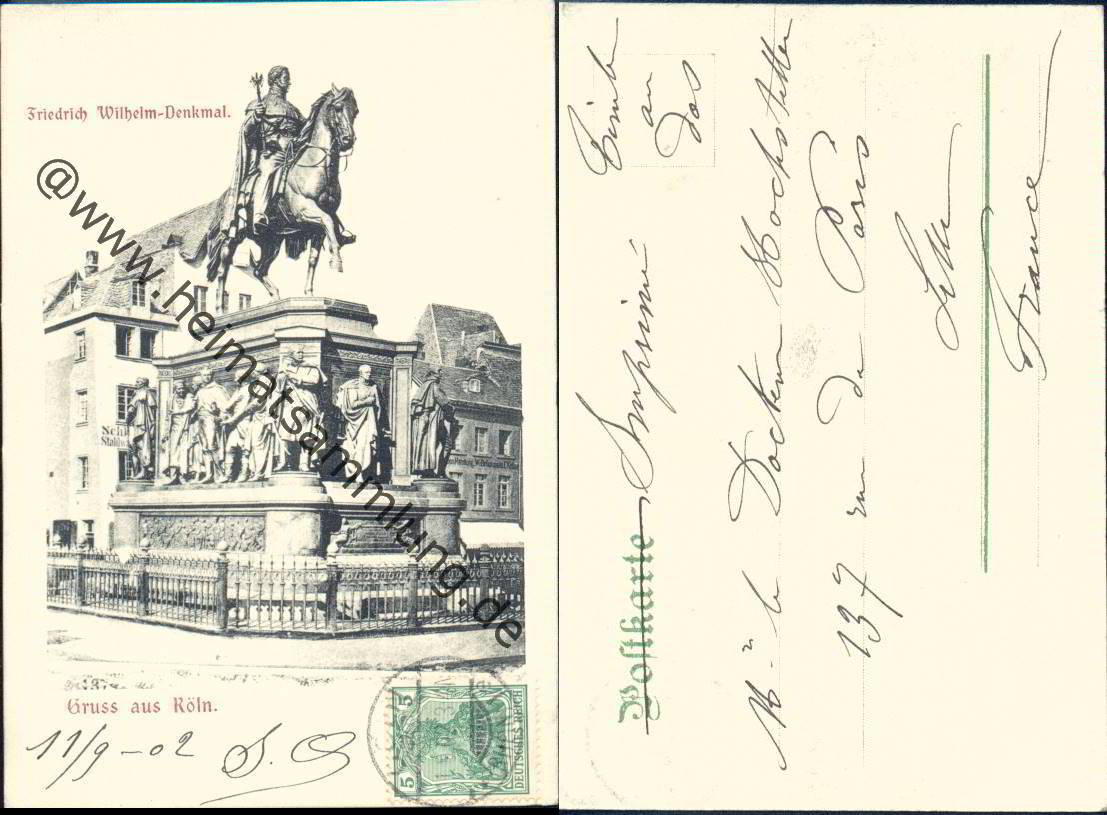 Friedrich Wilhelm-Denkmal.
@www.heimatsammlung.de
Gruss aus Köln.
11/9-02
5
5
DEUTSCHES REICH
Timbre
au
dos
Postkarte
Imprimé
le Docteur Hochstetter
137 rue de Paris
Lille
France